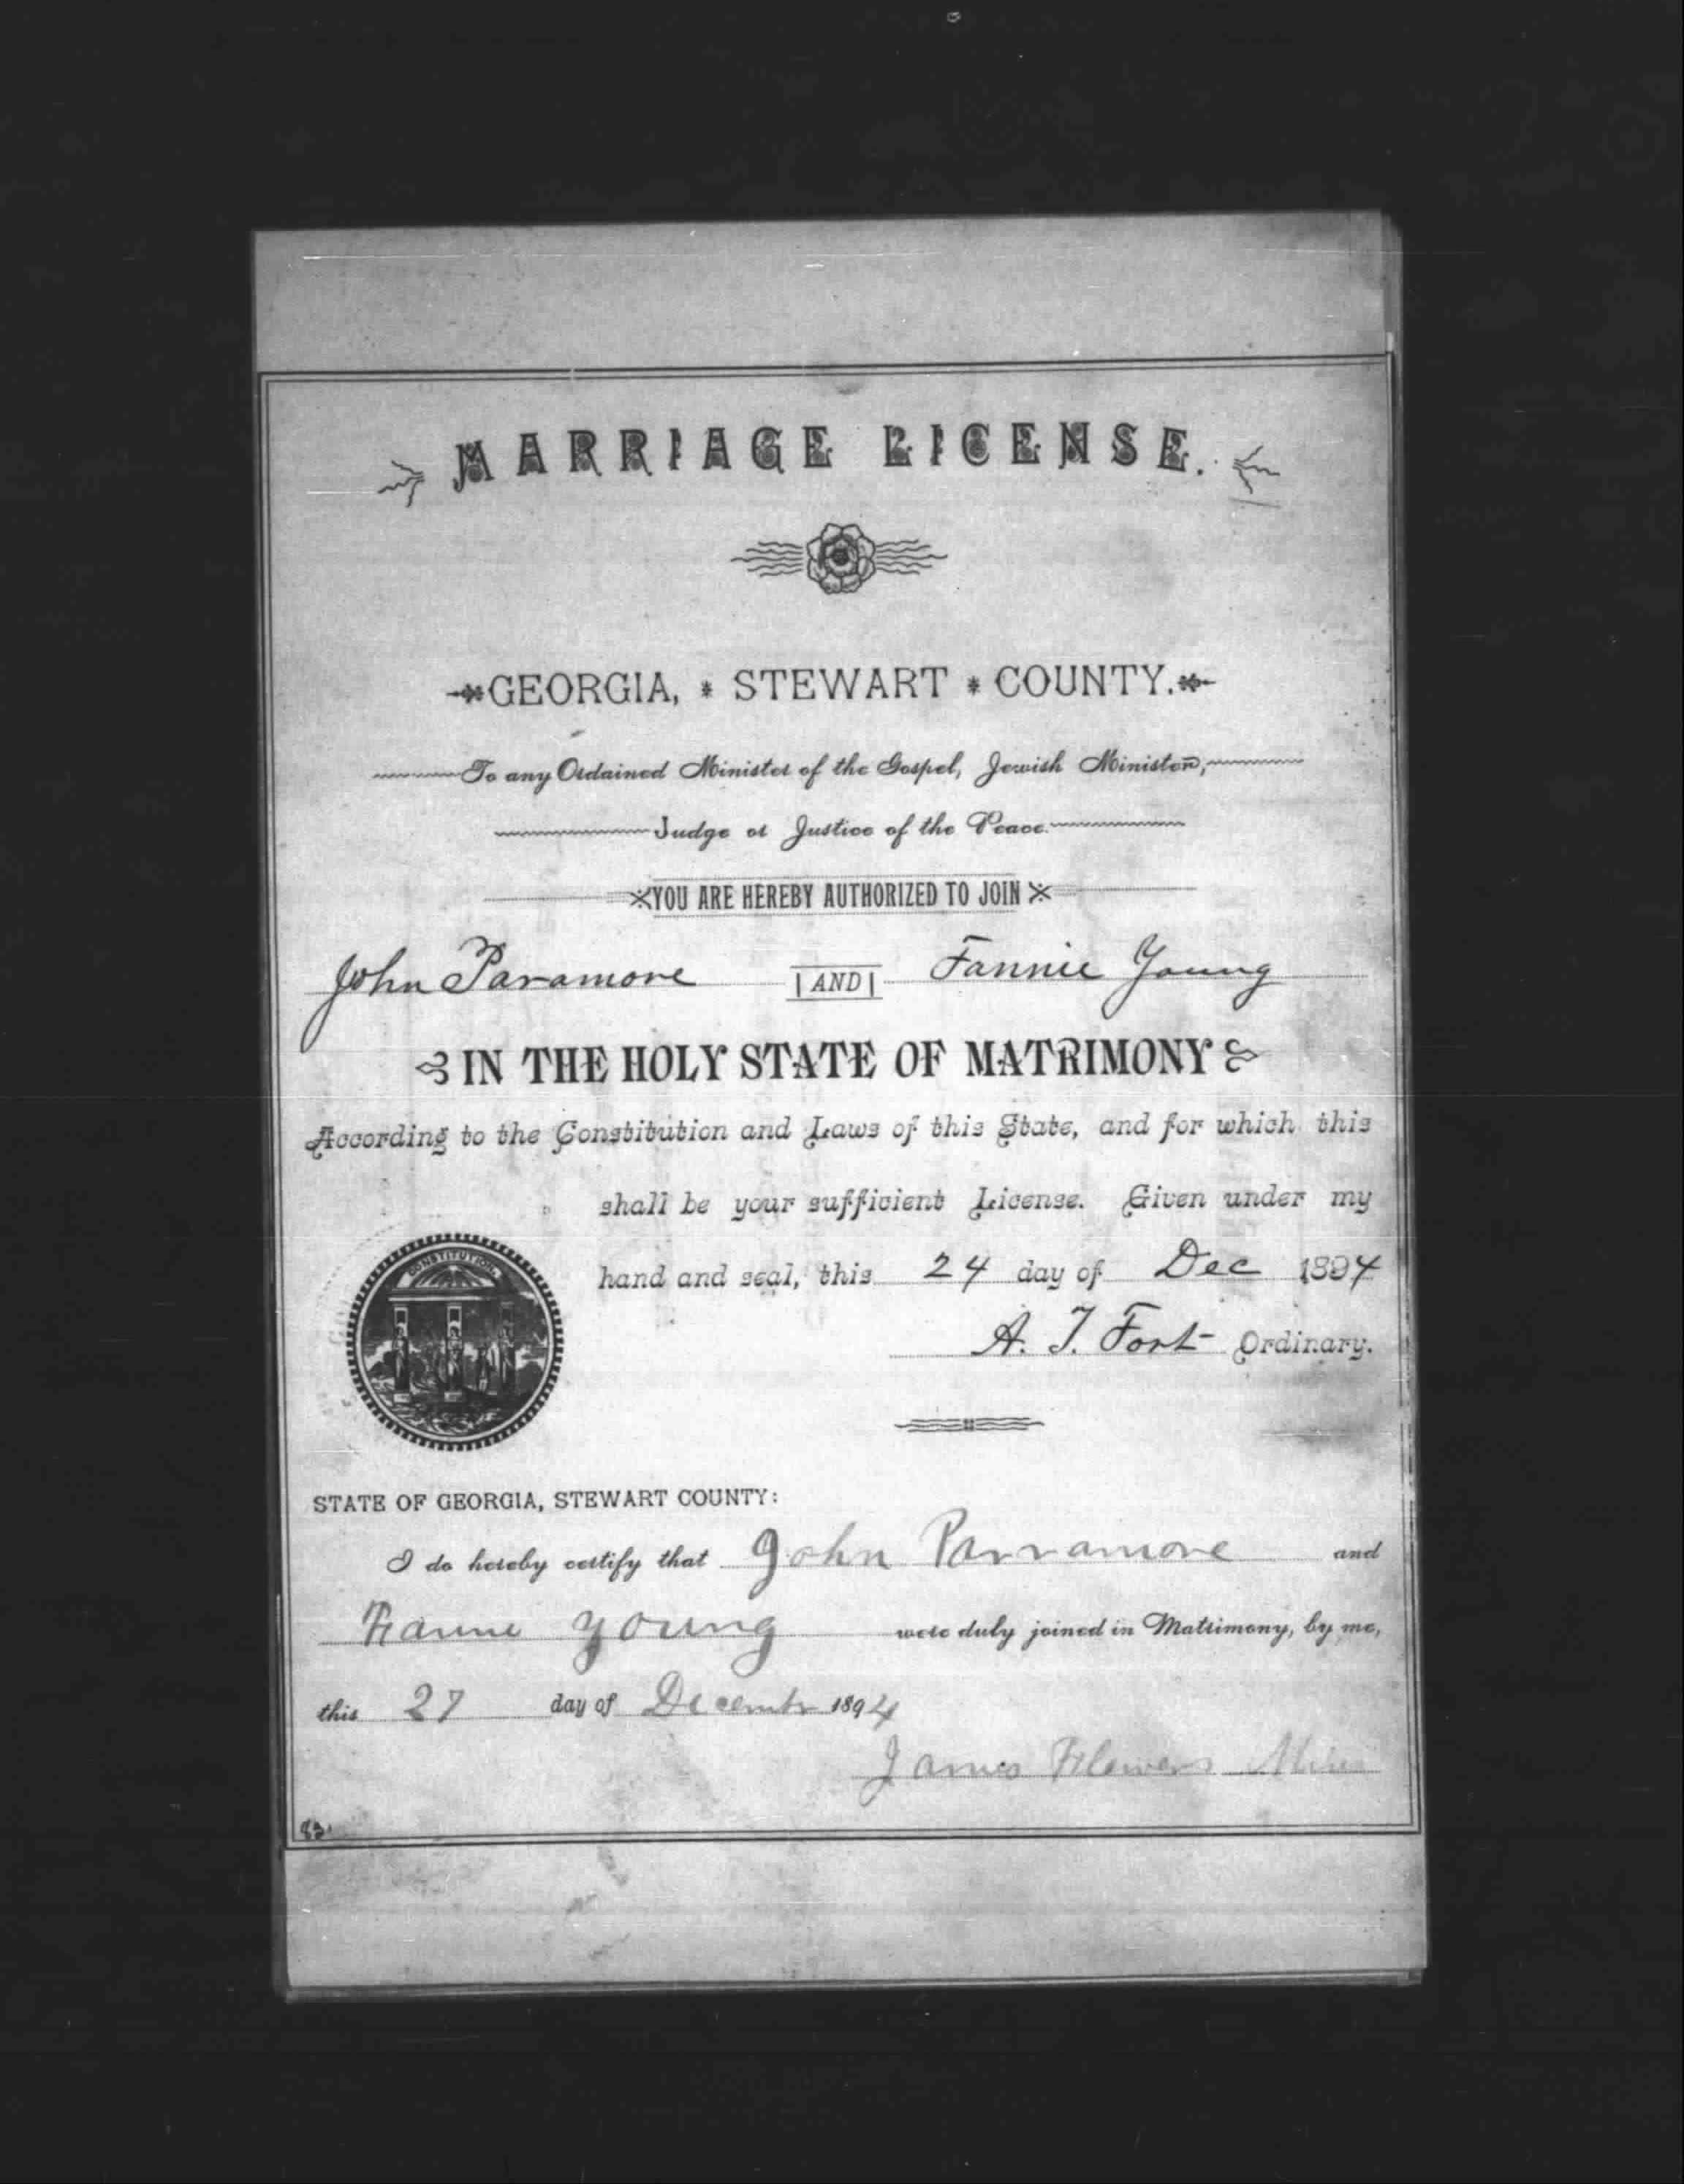 MARRIAGE LICENSE.
GEORGIA, * STEWART * COUNTY.
To any Ordained Minister of the Gospel, Jewish Minister,
Judge or Justice of the Peace.
YOU ARE HEREBY AUTHORIZED TO JOIN
John Paramore AND Fannie Young
IN THE HOLY STATE OF MATRIMONY
According to the Constitution and Laws of this State, and for which this
shall be your sufficient License. Given under my
CONSTITUTION
hand and seal, this 24 day of Dec 1894
A. T. Fort Ordinary.
STATE OF GEORGIA, STEWART COUNTY:
I do hereby certify that John Parramore and
Fannie Young were duly joined in Matrimony, by me,
this 27 day of December 1894
James Flowers